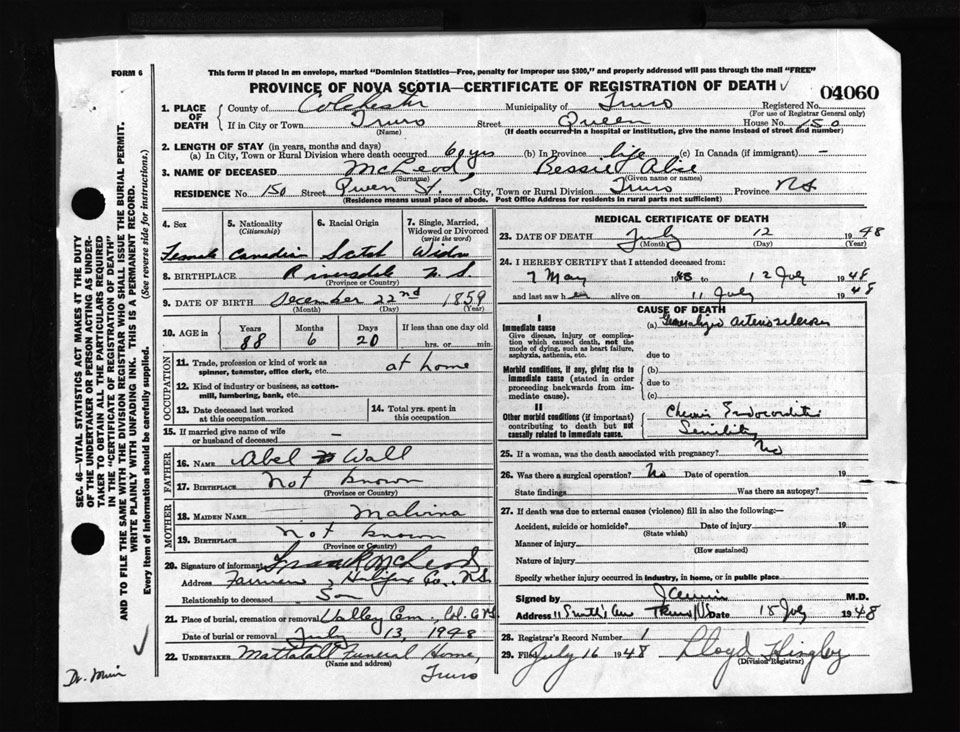 FORM 6
This form if placed in an envelope, marked "Dominion Statistics—Free, penalty for improper use $300," and properly addressed will pass through the mail "FREE"
PROVINCE OF NOVA SCOTIA—CERTIFICATE OF REGISTRATION OF DEATH
04060
1. PLACE OF DEATH
County of Colchester Municipality of Truro Registered No.
(For use of Registrar General only)
If in City or Town Truro Street Queen House No. 150
(Name) (If death occurred in a hospital or institution, give the name instead of street and number)
2. LENGTH OF STAY (in years, months and days)
(a) In City, Town or Rural Division where death occurred 60 yrs (b) In Province life (c) In Canada (if immigrant) —
3. NAME OF DECEASED McLeod, Bessie Alice
(Surname) (Given name or names)
RESIDENCE No. 150 Street Queen St. City, Town or Rural Division Truro Province N.S.
(Residence means usual place of abode. Post Office Address for residents in rural parts not sufficient)
4. Sex 5. Nationality (Citizenship) 6. Racial Origin 7. Single, Married, Widowed or Divorced (write the word)
Female Canadian Scotch Widow
8. BIRTHPLACE Riversdale N.S
(Province or Country)
9. DATE OF BIRTH December 22nd 1859
(Month) (Day) (Year)
10. AGE in Years Months Days If less than one day old
88 6 20 hrs. or min.
OCCUPATION
11. Trade, profession or kind of work as spinner, teamster, office clerk, etc. at home
12. Kind of industry or business, as cotton-mill, lumbering, bank, etc.
13. Date deceased last worked at this occupation
14. Total yrs. spent in this occupation
15. If married give name of wife or husband of deceased —
FATHER
16. NAME Abel Wall
17. BIRTHPLACE Not Known
(Province or Country)
MOTHER
18. MAIDEN NAME Malvina
19. BIRTHPLACE Not Known
(Province or Country)
20. Signature of informant Frank McLeod
Address Halifax Co., N.S.
Relationship to deceased Son
21. Place of burial, cremation or removal Valley Cem., Col. Co N.S.
Date of burial or removal July 13, 1948
22. UNDERTAKER Mattatall Funeral Home,
(Name and address)
Truro
MEDICAL CERTIFICATE OF DEATH
23. DATE OF DEATH July 12 1948
(Month) (Day) (Year)
24. I HEREBY CERTIFY that I attended deceased from:
7 May 1948 to 12 July 1948
and last saw her alive on 11 July 1948
CAUSE OF DEATH
I
Immediate cause (a) Generalized arteriosclerosis
Give disease, injury or complication which caused death, not the mode of dying, such as heart failure, asphyxia, asthenia, etc.
due to
Morbid conditions, if any, giving rise to immediate cause (stated in order proceeding backwards from immediate cause).
(b)
due to
(c)
II
Other morbid conditions (if important) contributing to death but not causally related to immediate cause.
Chronic Endocarditis
Senility
25. If a woman, was the death associated with pregnancy? No
26. Was there a surgical operation? No Date of operation 19
State findings Was there an autopsy?
27. If death was due to external causes (violence) fill in also the following:—
Accident, suicide or homicide? Date of injury 19
(State which)
Manner of injury
(How sustained)
Nature of injury
Specify whether injury occurred in industry, in home, or in public place
Signed by M.D.
Address 11 Smith's Ave Truro N.S. Date 15 July 1948
28. Registrar's Record Number 1
29. Filed July 16 1948 Lloyd Hingley
(Division Registrar)
SEC. 46—VITAL STATISTICS ACT MAKES IT THE DUTY
OF THE UNDERTAKER OR PERSON ACTING AS UNDER-
TAKER TO OBTAIN ALL THE PARTICULARS REQUIRED
IN THE "CERTIFICATE OF REGISTRATION OF DEATH"
AND TO FILE THE SAME WITH THE DIVISION REGISTRAR WHO SHALL ISSUE THE BURIAL PERMIT.
WRITE PLAINLY WITH UNFADING INK. THIS IS A PERMANENT RECORD.
Every item of information should be carefully supplied. (See reverse side for instructions.)
Dr. Muir